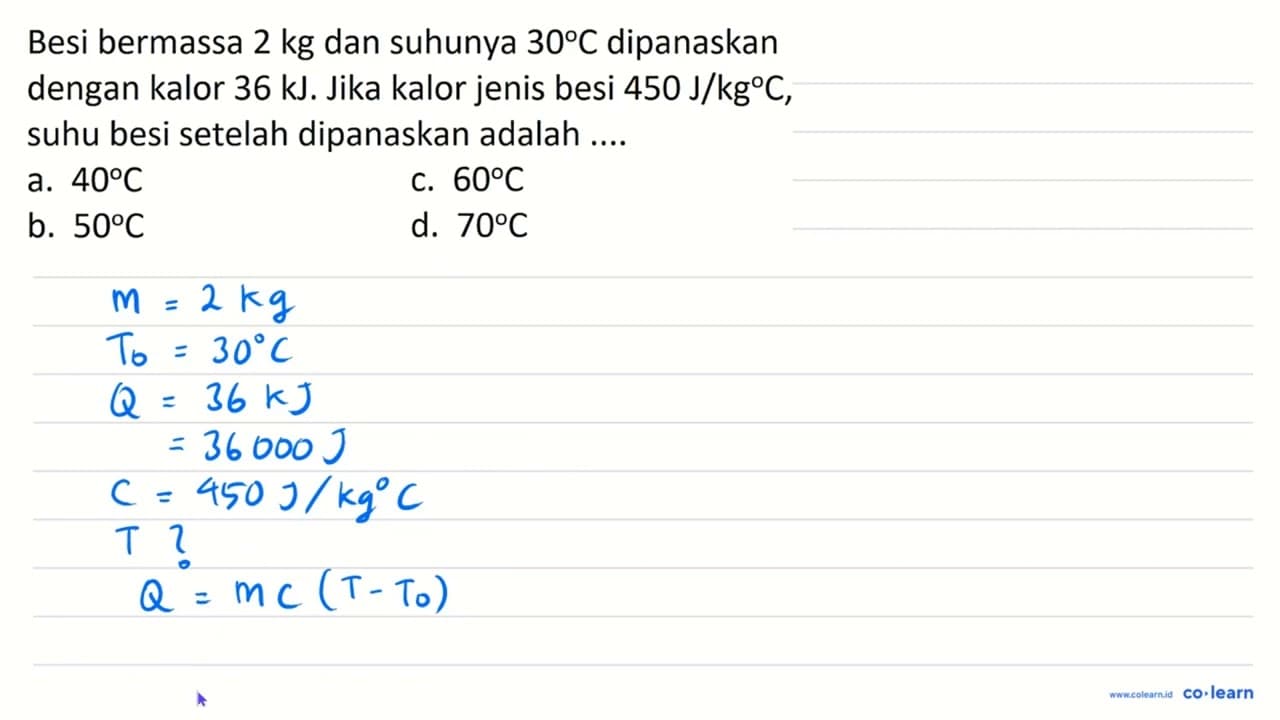 Besi bermassa 2 kg dan suhunya 30°C dipanaskan
dengan kalor 36 kJ. Jika kalor jenis besi 450 J/kg°C,
suhu besi setelah dipanaskan adalah ....
a. 40°C c. 60°C
b. 50°C d. 70°C
m = 2 kg
T₀ = 30°C
Q = 36 kJ
= 36000 J
C = 450 J/kg°C
T ?
Q = m c (T - T₀)
www.colearn.id co·learn